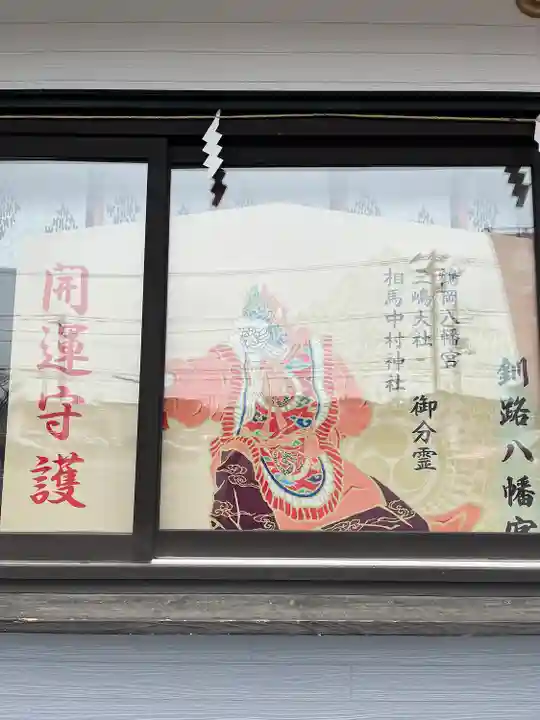 釧路八幡宮
岡八幡宮
三嶋大社
相馬中村神社
御分霊
開運守護